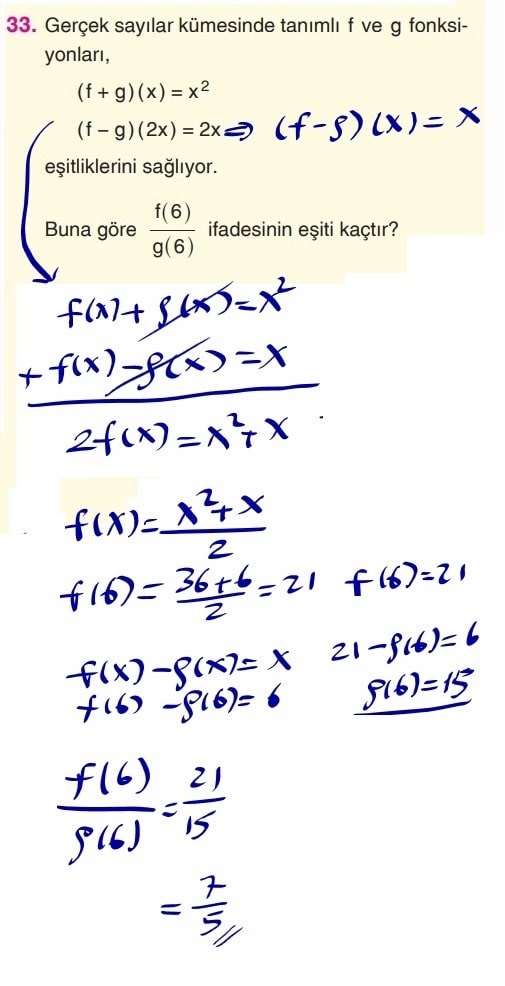 33. Gerçek sayılar kümesinde tanımlı f ve g fonksi-
yonları,
(f + g)(x) = x²
(f – g)(2x) = 2x ⇒ (f-g)(x) = x
eşitliklerini sağlıyor.
Buna göre f(6)/g(6) ifadesinin eşiti kaçtır?
f(x) + g(x) = x²
+ f(x) - g(x) = x
2f(x) = x² + x
f(x) = x² + x / 2
f(6) = 36+6 / 2 = 21 f(6) = 21
f(x) - g(x) = x 21 - g(6) = 6
f(6) - g(6) = 6 g(6) = 15
f(6)/g(6) = 21/15
= 7/5 //